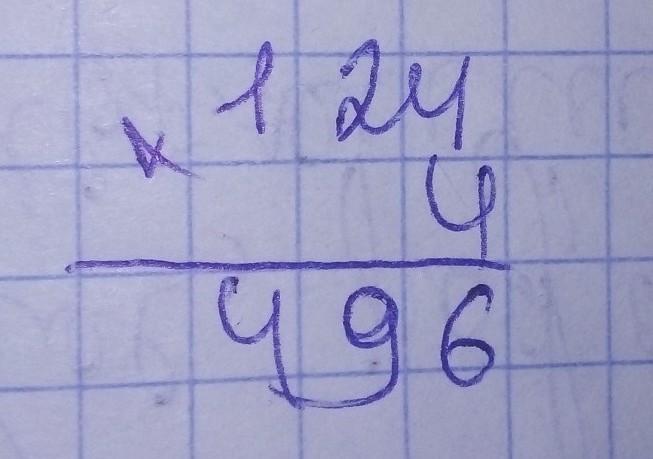 124
×
4
496